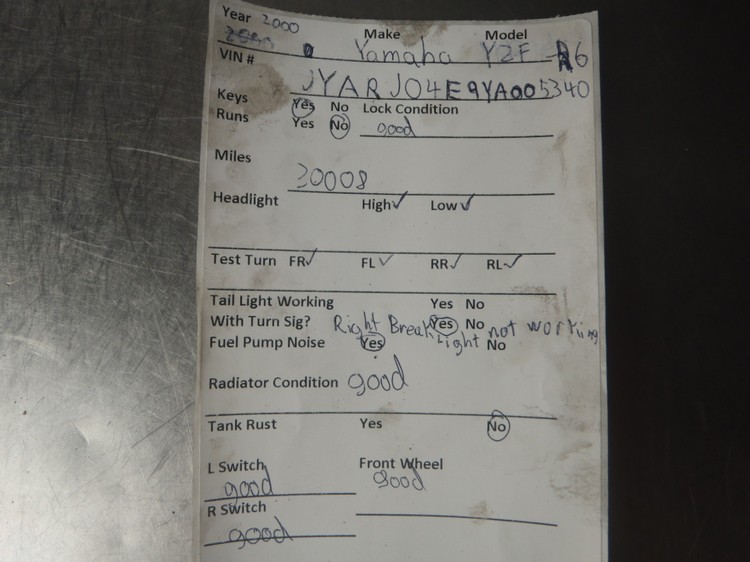 Year 2000 Make Model
Yamaha YZF-R6
VIN #
JYARJ04E9YA005340
Keys Yes No Lock Condition
Runs Yes No good
Miles
30008
Headlight High✓ Low✓
Test Turn FR✓ FL✓ RR✓ RL✓
Tail Light Working Yes No
With Turn Sig? Yes No
Right Break Light not working
Fuel Pump Noise Yes No
Radiator Condition good
Tank Rust Yes No
L Switch Front Wheel
good good
R Switch
good